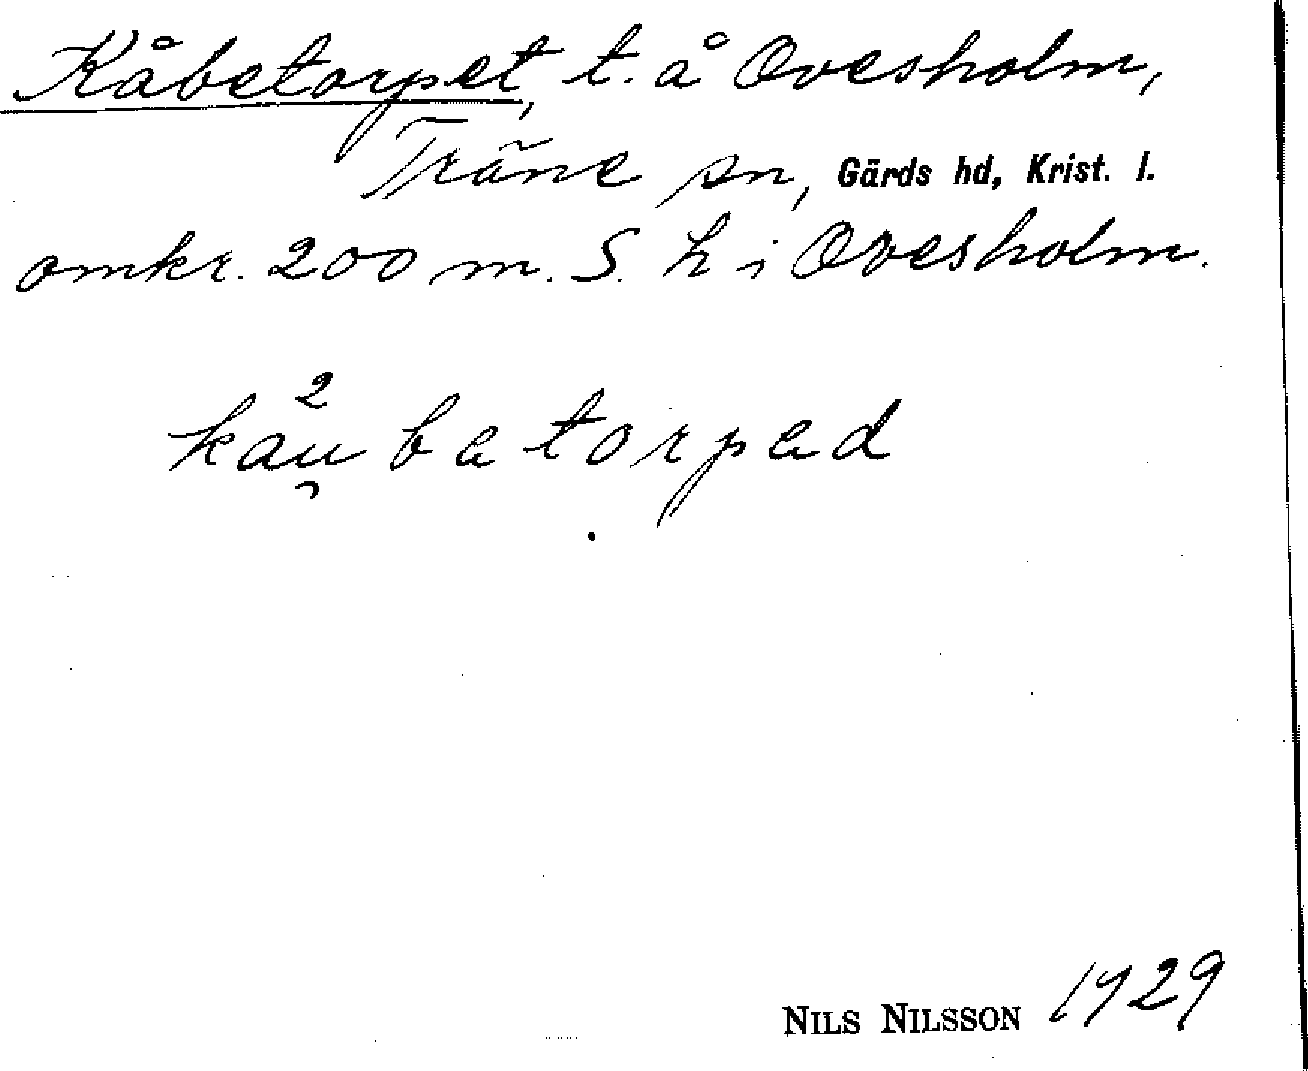 Kåbetorpet, t. å Ovesholm,
Träne sn, Gärds hd, Krist. l.
omkr. 200 m. S. h i Ovesholm.
2
kau̯betorped
NILS NILSSON 1929